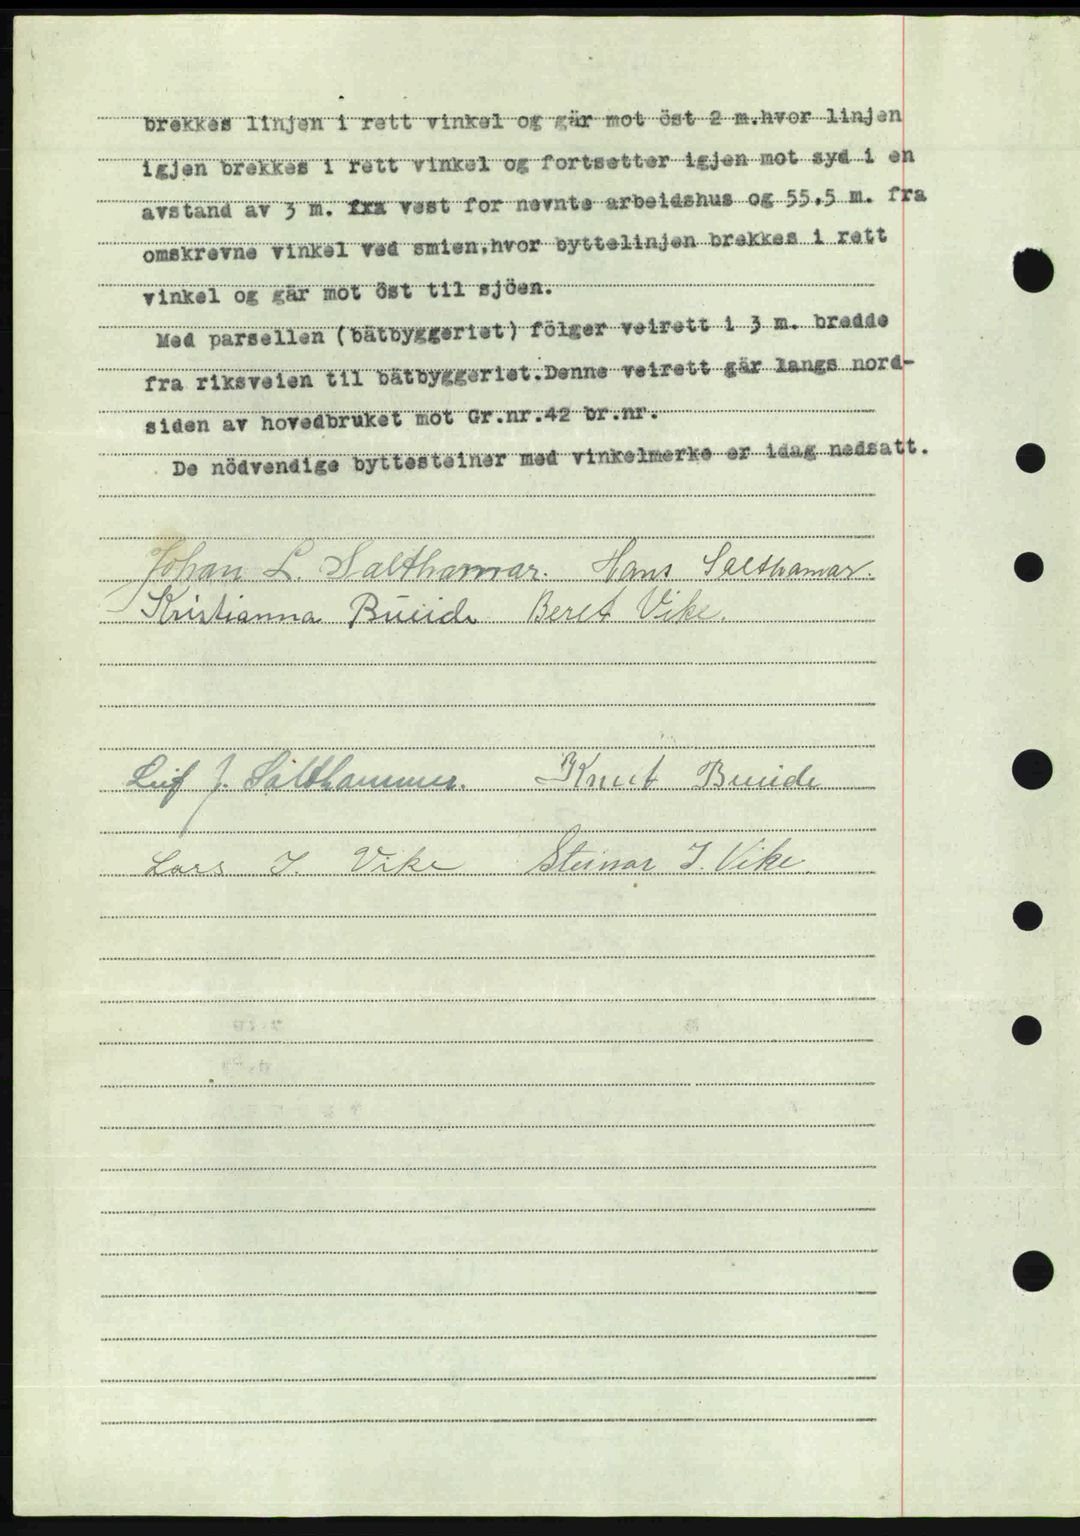 brekkes linjen i rett vinkel og går mot öst 2 m.hvor linjen
igjen brekkes i rett vinkel og fortsetter igjen mot syd i en
avstand av 3 m. fra vest for nevnte arbeidshus og 55,5 m. fra
omskrevne vinkel ved smien,hvor byttelinjen brekkes i rett
vinkel og går mot öst til sjöen.
Med parsellen (båtbyggeriet) fölger veirett i 3 m. bredde
fra riksveien til båtbyggeriet.Denne veirett går langs nord-
siden av hovedbruket mot Gr.nr.42 br.nr.
De nödvendige byttesteiner med vinkelmerke er idag nedsatt.
Johan L. Salthamar. Hans Salthamar.
Kristianna Bueide Beret Vike.
Leif J. Salthammer. Knut Bueide
Lars I. Vike Steinar I. Vike.